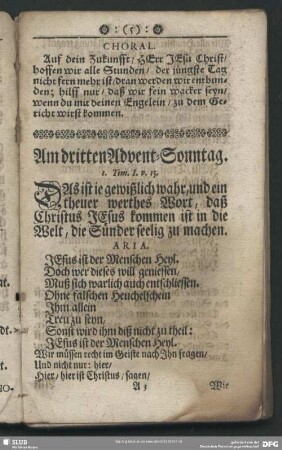 :(5):
CHORAL.
Auf dein Zukunfft/ HErr JEsu Christ/
hoffen wir alle Stunden/ der jüngste Tag
nicht fern mehr ist/ dran werden wir entbun-
den; hilff nur/ daß wir fein wacker seyn/
wenn du mit deinen Engelein/ zu dem Ge-
richt wirst kommen.
Am dritten Advent-Sonntag.
1. Tim. I. v. 15.
DAs ist ie gewißlich wahr, und ein
theuer werthes Wort, daß
Christus JEsus kommen ist in die
Welt, die Sünder seelig zu machen.
ARIA.
JEsus ist der Menschen Heyl.
Doch wer dieses will geniessen,
Muß sich warlich auch entschliessen.
Ohne falschen Heuchelschein
Ihm allein
Treu zu seyn,
Sonst wird ihm diß nicht zu theil:
JEsus ist der Menschen Heyl.
Wir müssen recht im Geiste nach Ihn fragen/
Und nicht nur: hier/
Hier/ hier ist Christus/ sagen/
A 3
Wir
SLUB
DFG